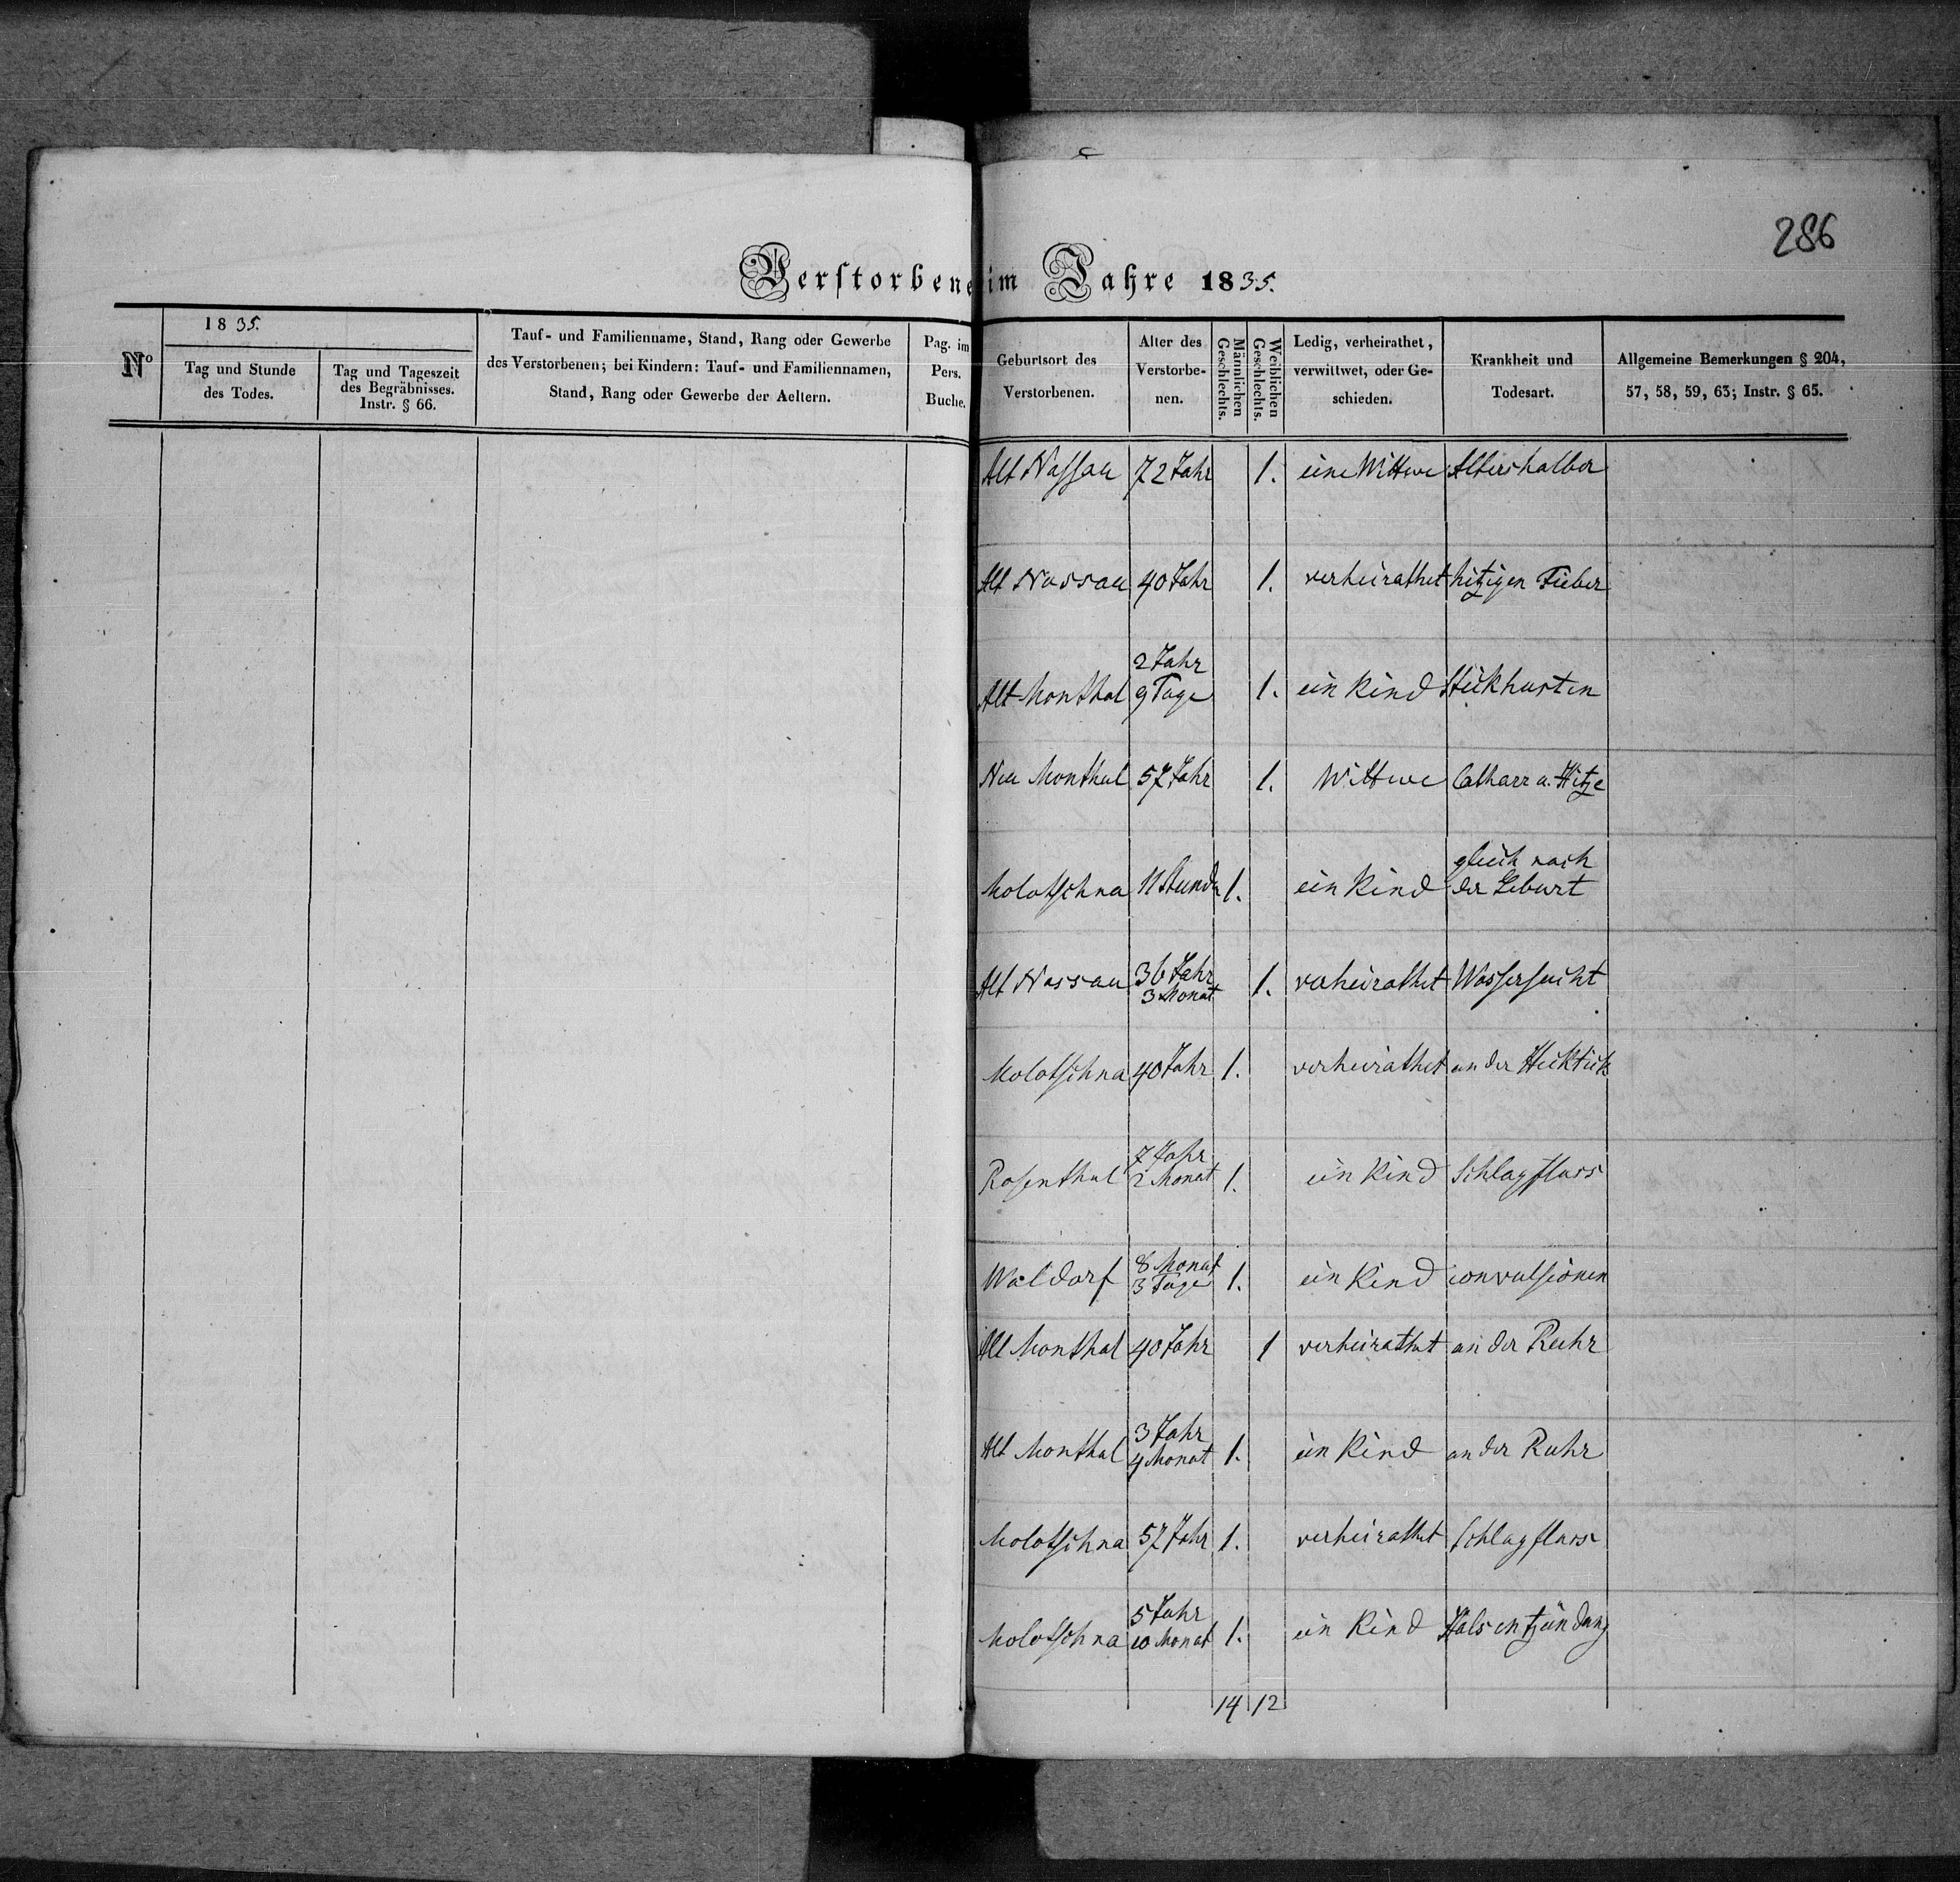 286
Verstorbene im Jahre 1835.
No
1835.
Tag und Stunde
des Todes.
Tag und Tageszeit
des Begräbnisses.
Instr. § 66.
Tauf- und Familienname, Stand, Rang oder Gewerbe
des Verstorbenen; bei Kindern: Tauf- und Familiennamen,
Stand, Rang oder Gewerbe der Aeltern.
Pag. im
Pers.
Buche.
Geburtsort des
Verstorbenen.
Alter des
Verstorbe-
nen.
Männlichen
Geschlechts.
Weiblichen
Geschlechts.
Ledig, verheirathet,
verwittwet, oder Ge-
schieden.
Krankheit und
Todesart.
Allgemeine Bemerkungen § 204,
57, 58, 59, 63; Instr. § 65.
Alt Nassau 72 Jahr 1. eine Wittwe Altershalber
Alt Nassau 40 Jahr 1. verheirathet hitzigen Fieber
2 Jahr
Alt Monthal 9 Tage 1. ein Kind Stickhusten
Neu Monthal 57 Jahr 1. Wittwe Catharr u. Hitze
gleich nach
Molotschna 11 Stunde 1. ein Kind der Geburt
Alt Nassau 36 Jahr 1. verheirathet Wassersucht
3 Monat
Molotschna 40 Jahr 1. verheirathet an der Hecktick
7 Jahr
Rosenthal 2 Monat 1. ein Kind Schlagfluss
8 Monat
Waldorf 3 Tage 1. ein Kind convulsionen
Alt Monthal 40 Jahr 1 verheirathet an der Ruhr
3 Jahr
Alt Monthal 4 Monat 1. ein Kind an der Ruhr
Molotschna 57 Jahr 1. verheirathet Schlagfluss
5 Jahr
Molotschna 10 Monat 1. ein Kind Halsentzündung
14 12